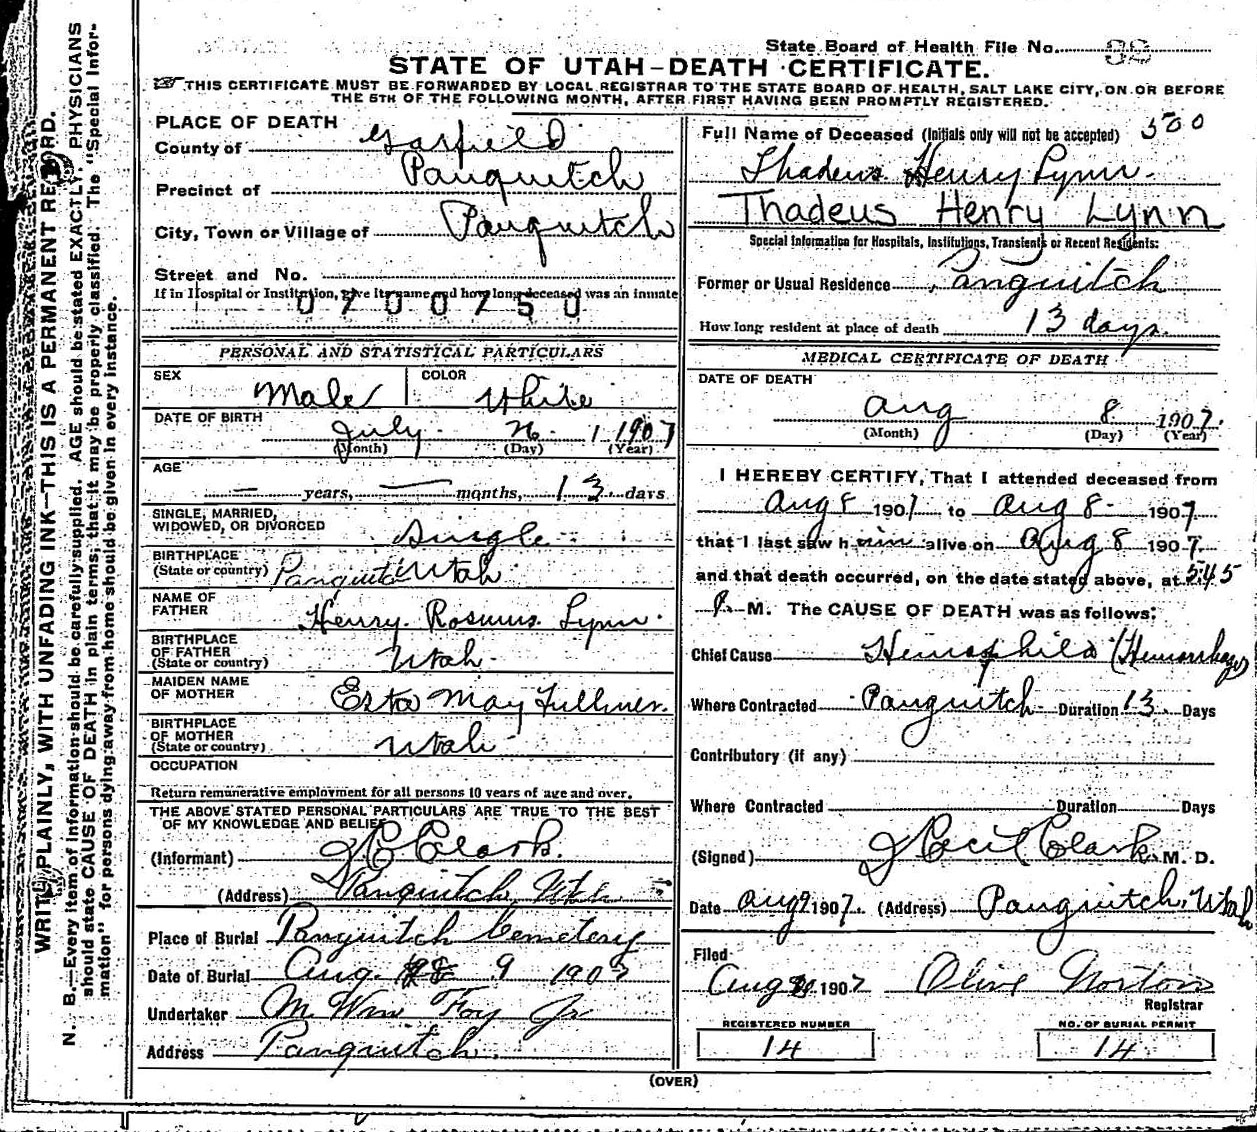 State Board of Health File No.
STATE OF UTAH—DEATH CERTIFICATE.
THIS CERTIFICATE MUST BE FORWARDED BY LOCAL REGISTRAR TO THE STATE BOARD OF HEALTH, SALT LAKE CITY, ON OR BEFORE
THE 5TH OF THE FOLLOWING MONTH, AFTER FIRST HAVING BEEN PROMPTLY REGISTERED.
WRITE PLAINLY, WITH UNFADING INK—THIS IS A PERMANENT RECORD.
N. B.—Every item of information should be carefully supplied. AGE should be stated EXACTLY. PHYSICIANS
should state CAUSE OF DEATH in plain terms, that it may be properly classified. The "Special Infor-
mation" for persons dying away from home should be given in every instance.
PLACE OF DEATH
County of Garfield
Precinct of Panguitch
City, Town or Village of Panguitch
Street and No.
If in Hospital or Institution, give its name and how long deceased was an inmate
0700750
PERSONAL AND STATISTICAL PARTICULARS
SEX Male COLOR White
DATE OF BIRTH July 26 1907
(Month) (Day) (Year)
AGE
— years, — months, 13 days
SINGLE, MARRIED,
WIDOWED, OR DIVORCED Single
BIRTHPLACE
(State or country) Panguitch Utah
NAME OF
FATHER Henry Lynn
BIRTHPLACE
OF FATHER
(State or country) Utah
MAIDEN NAME
OF MOTHER May Fullmer
BIRTHPLACE
OF MOTHER
(State or country) Utah
OCCUPATION
Return remunerative employment for all persons 10 years of age and over.
THE ABOVE STATED PERSONAL PARTICULARS ARE TRUE TO THE BEST
OF MY KNOWLEDGE AND BELIEF
(Informant) J C Clark
(Address) Panguitch, Utah
Place of Burial Panguitch Cemetery
Date of Burial Aug. 9 1907
Undertaker M. Wm Foy Jr
Address Panguitch
Full Name of Deceased (Initials only will not be accepted) 500
Thadeus Henry Lynn
Thadeus Henry Lynn
Special Information for Hospitals, Institutions, Transients or Recent Residents:
Former or Usual Residence Panguitch
How long resident at place of death 13 days
MEDICAL CERTIFICATE OF DEATH
DATE OF DEATH
Aug 8 1907
(Month) (Day) (Year)
I HEREBY CERTIFY, That I attended deceased from
Aug 8 1907 to Aug 8 1907
that I last saw him alive on Aug 8 1907
and that death occurred, on the date stated above, at 5:45
P. M. The CAUSE OF DEATH was as follows:
Chief Cause Hemophilia (Hemorrhage)
Where Contracted Panguitch Duration 13 Days
Contributory (if any)
Where Contracted Duration Days
(Signed) J Cecil Clark M. D.
Date Aug 9 1907 (Address) Panguitch, Utah
Filed
Aug 1907 Olive Norton
Registrar
REGISTERED NUMBER
14
NO. OF BURIAL PERMIT
14
(OVER)